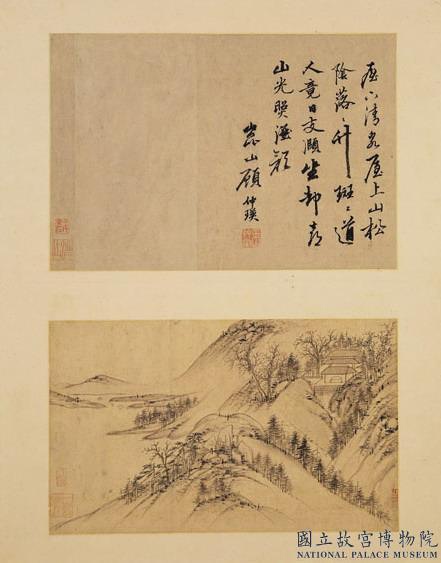 屋下清泉屋上山松
陰落〻竹斑〻道
人竟日支頤坐却喜
山光暎酒顏
崑山顧仲瑛
國立故宮博物院
NATIONAL PALACE MUSEUM